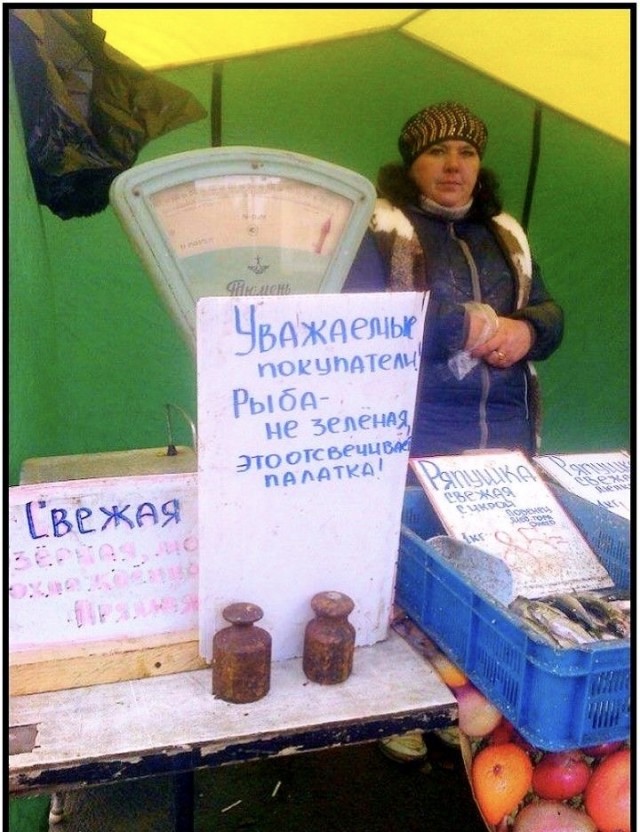 Тюмень
Уважаемые
покупатели!
Рыба-
не зелёная,
это отсвечивает
палатка!
Свежая
озёрная, мо
охлаждённая
Прямая
Ряпушка
свежая
с икрой
1кг
Ряпушка
свежая
1кг